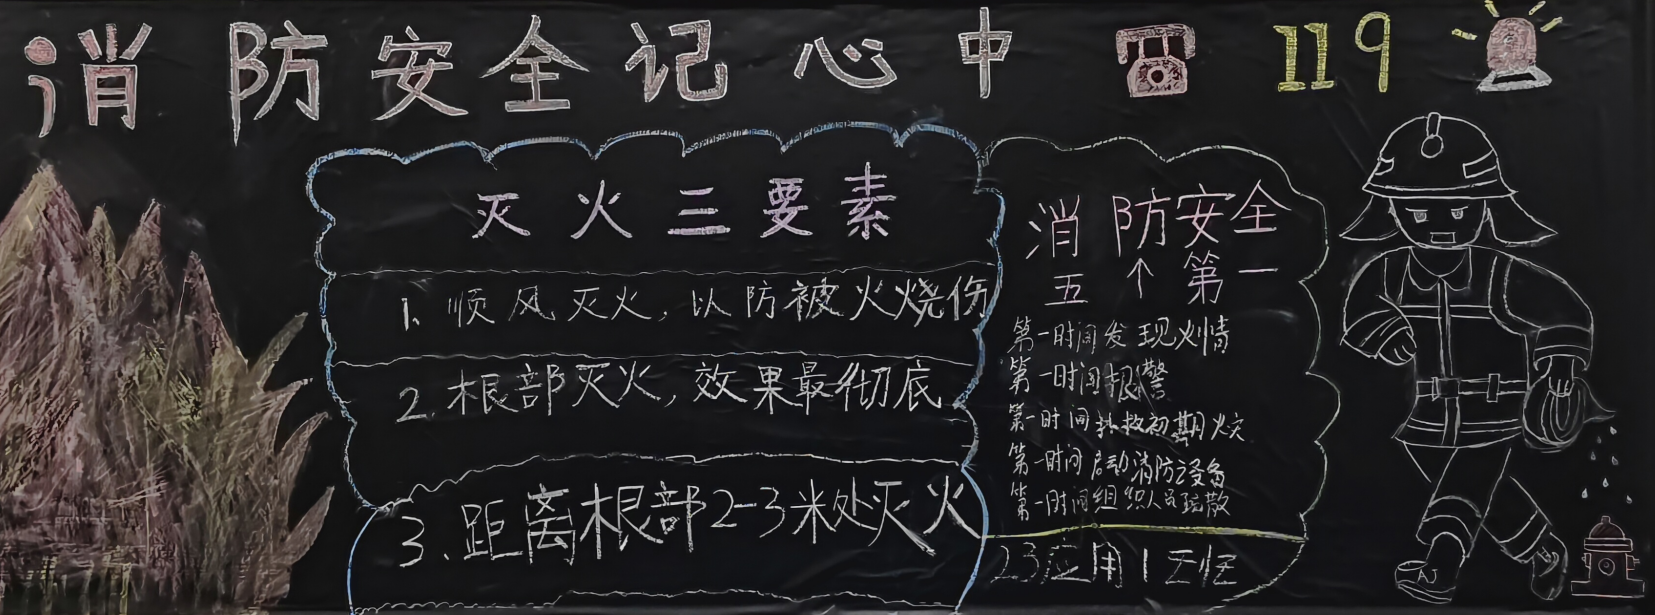 消防安全记心中 119
灭火三要素
1. 顺风灭火，以防被火烧伤
2. 根部灭火，效果最彻底
3. 距离根部2-3米处灭火
消防安全
五个第一
第一时间发现火情
第一时间报警
第一时间扑救初期火灾
第一时间启动消防设备
第一时间组织人员疏散
23应用1